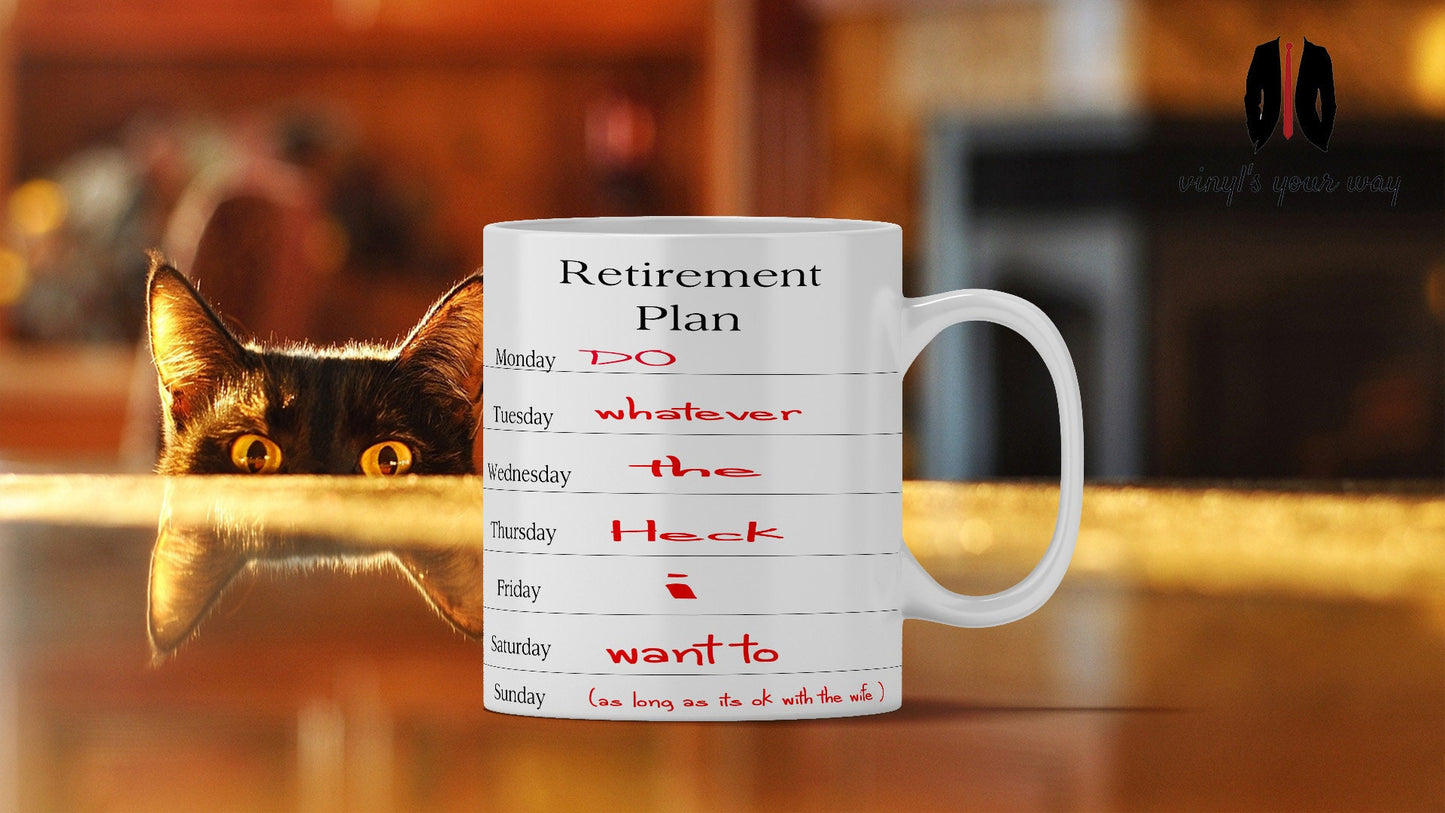 vinyl's your way
Retirement
Plan
Monday DO
Tuesday whatever
Wednesday the
Thursday Heck
Friday i
Saturday want to
Sunday (as long as its ok with the wife)